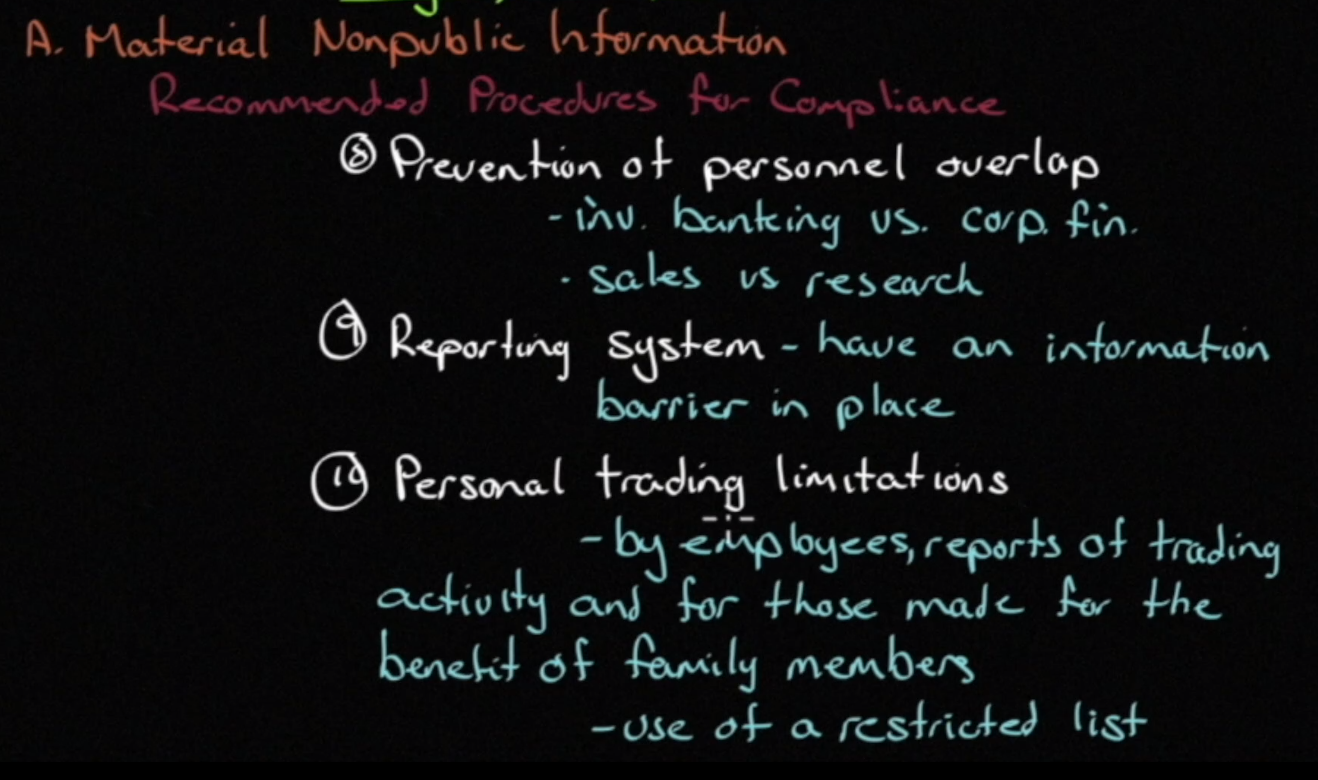 A. Material Nonpublic Information
Recommended Procedures for Compliance
⑧ Prevention of personnel overlap
- inv. banking vs. corp. fin.
- sales vs research
⑨ Reporting system - have an information
barrier in place
⑩ Personal trading limitations
- by employees, reports of trading
activity and for those made for the
benefit of family members
- use of a restricted list